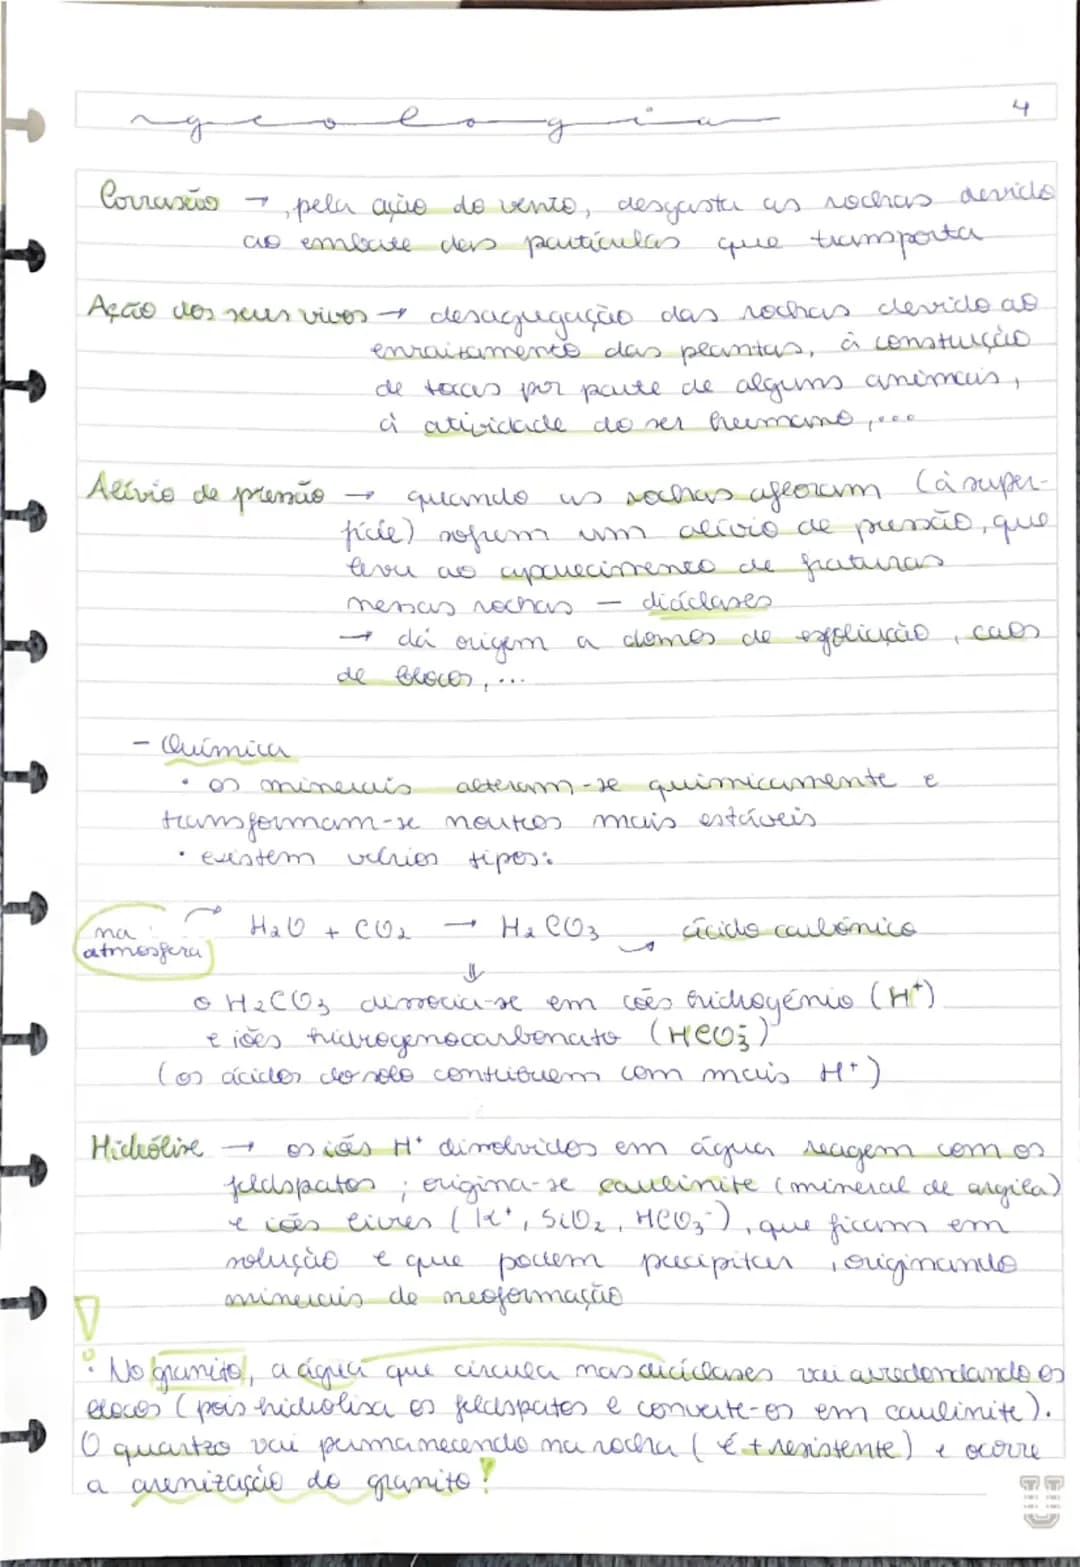 geologia
4
Corrasão → , pela ação do vento, desgasta as rochas devido
ao embate das partículas que transporta
Ação dos seres vivos → desagregação das rochas devido ao
enraizamento das plantas, à construção
de tocas por parte de alguns animais,
à atividade do ser humano,...
Alívio de pressão → quando as rochas afloram (à super-
fície) sofrem um alívio de pressão, que
leva ao aparecimento de fraturas
nessas rochas — diáclases
→ dá origem a domos de esfoliação, caos
de blocos,...
- Química
• os minerais alteram-se quimicamente e
transformam-se noutros mais estáveis
• existem vários tipos:
na atmosfera H₂O + CO₂ → H₂CO₃ → ácido carbónico
⇓
o H₂CO₃ dissocia-se em iões hidrogénio (H⁺)
e iões hidrogenocarbonato (HCO₃⁻)
(os ácidos do solo contribuem com mais H⁺)
Hidrólise → os iões H⁺ dissolvidos em água reagem com os
feldspatos ; origina-se caulinite (mineral de argila)
e iões livres (K⁺, SiO₂, HCO₃⁻), que ficam em
solução e que podem precipitar, originando
minerais de neoformação
! : No granito, a água que circula nas diáclases vai arredondando os
blocos (pois hidrolisa os feldspatos e converte-os em caulinite).
O quartzo vai permanecendo na rocha (é + resistente) e ocorre
a arenização do granito!
U